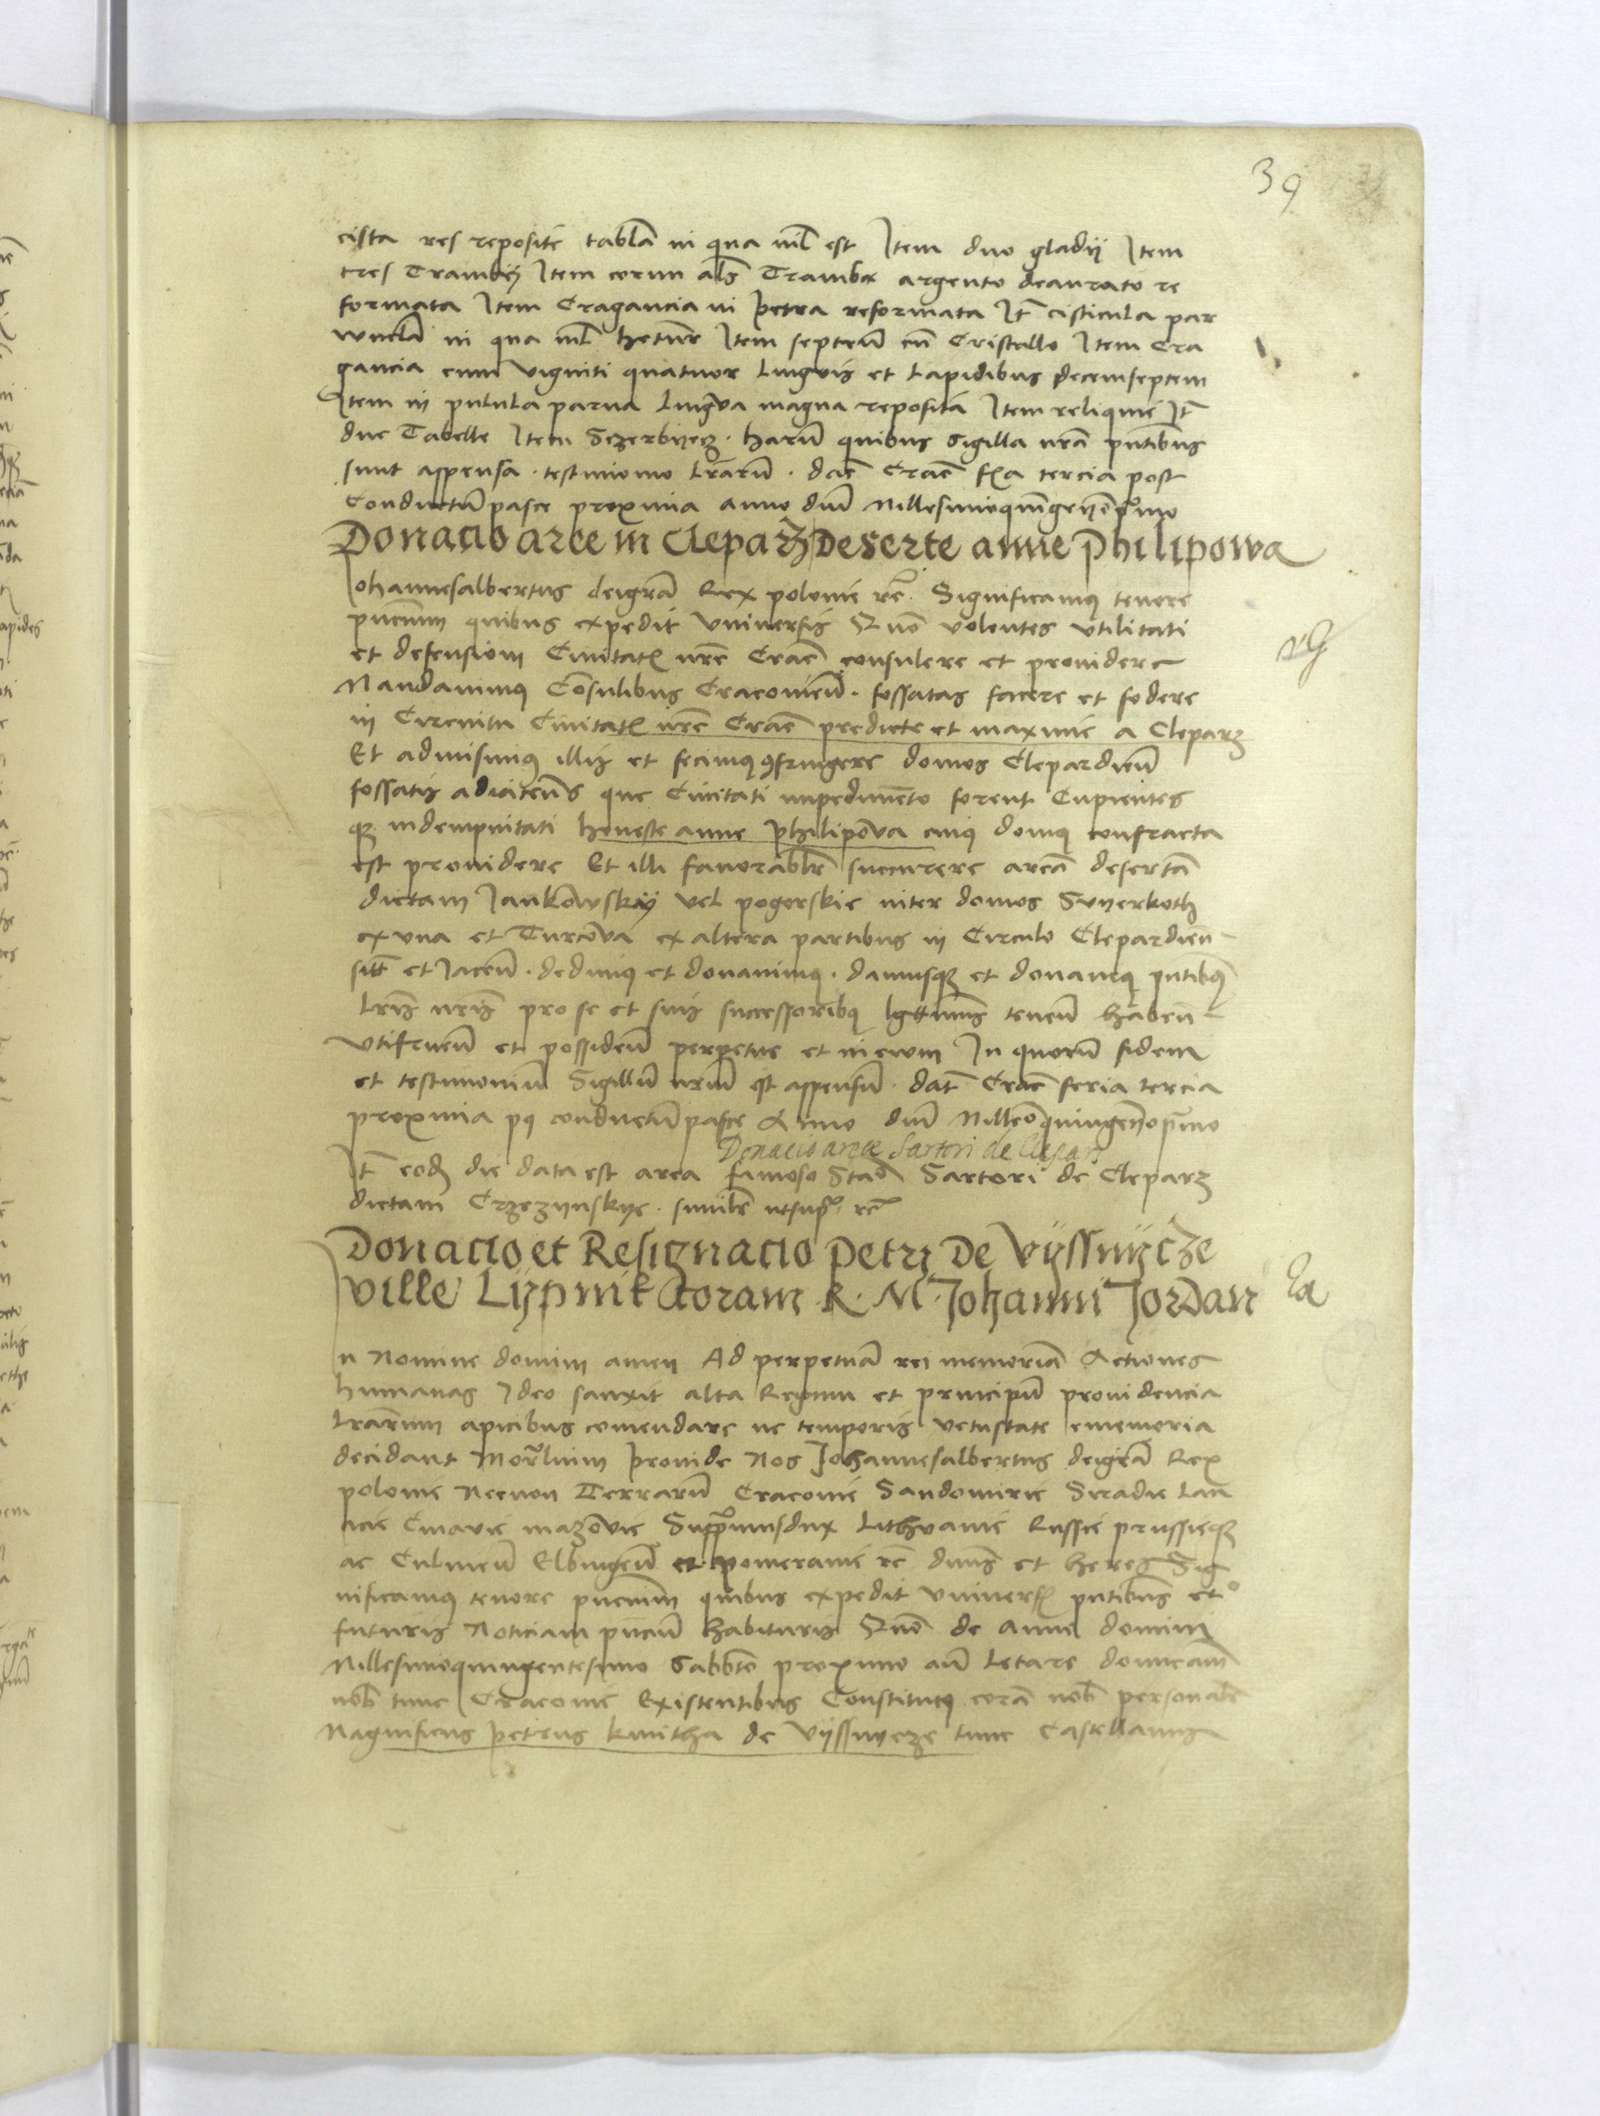 39
cista res reposite tabla in qua nil est Item duo gladii Item
tres Trambÿ Item cornu als Tramba argento deaurato re
formata Item Cragancia in petra reformata It cisticula par
wncla in qua nil hetur Item septrum cu Cristallo Item Cra
gancia cum viginti quatuor linguis et Lapidibus decemseptem
Item in pulula parua lingwa magna reposita Item reliquie It
due Tabelle Item Sczerbyecz. harum quibus sigilla nra pntibus
sunt appensa. testimonio lrarum. dat Crac fia tercia post
Conductum pasce proxima anno dni Millesimoquingenpmo
Donacio aree in Cleparz Deserte anne Philipowa
Johannesalbertus deigra Rex polonie rc. Significamus tenore
pncium quibus expedit Vniuersis Quo volentes vtilitati
et defensioni Ciuitat nre Crac consulere et prouidere
Mandauimus Consulibus Cracouien. fossatas facere et fodere
in Circuitu Ciuitat nre Crac predicte et maxime a Cleparz
Et admisimus illis et fecimus 9fringere domos Clepardien
fossatis adiacens que Ciuitati impedimento forent Cupientes
q indempnitati honeste anne Philipowa cuius domus confracta
est prouidere Et illi fauorablr succurere area deserta
dictam Jankowskÿ vel pogorskie inter domos Swyerkoth
ex vna et Turcowa ex altera partibus in Circulo Clepardien
sit et Jacen. dedimus et donauimus. damusq et donamus pntibus
lris nris pro se et suis successoribus lgittimis tenen haben
vtifruen et possiden perpetue et in ewm In quorum fidem
et testimonium Sigillum nrum est appensum. dat Crac feria tercia
proxima po conductum pasce Anno dni Milleoquingenopmo
Donacio aree Sartori de Clepar
It eod die data est area famoso Sta Sartori de Cleparz
dictam Crzezynskye. simile utsup. rc
Donacio et Resignacio petri De Vÿssnÿcze
Ville Lÿpnik coram R. M. Johanni Jordan
In Nomine domini amen Ad perpetuam rei memoriam Actiones
humanas Ideo sanxit alta Regum et principum prouidencia
lrarum apicibus comendare ne temporis vetustate ememoria
decidant Mortalium Proinde Nos Johannesalbertus deigra Rex
polonie Necnon Terrarum Cracouie Sandomirie Siradie Lan
icie Cuiauie mazowie Suppremusdux Lithvanie Russie prussieq
ac Culmen Elbingen et pomeranie rc dnus et heres Sig
nificamus tenore pncium quibus expedit Vniuersis pntibus et
futuris Noticiam pncium habituris Quo de Anno domini
Millesimoquingentesimo Sabbto proximo an Letare dominicam
nob tunc Cracouie Existentibus Constitutus cora nob personalr
Magnificus Petrus kmitha de Vÿssnycze tunc Castellanus